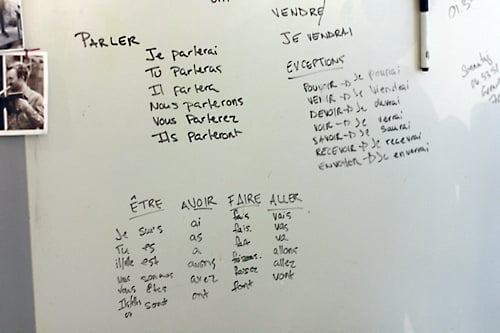 VENDRE
JE VENDRAI
PARLER
Je parlerai
Tu parleras
Il parlera
Nous parlerons
Vous Parlerez
Ils Parleront
EXCEPTIONS
POUVOIR → Je pourrai
VENIR → Je viendrai
DEVOIR → Je devrai
VOIR → Je verrai
SAVOIR → Je saurai
RECEVOIR → Je recevrai
ENVOYER → Je enverrai
ÊTRE AVOIR FAIRE ALLER
Je suis ai fais vais
Tu es as fais vas
il/elle est a fait va
nous sommes avons faisons allons
vous êtes avez allez
Ils/Elles sont ont font vont